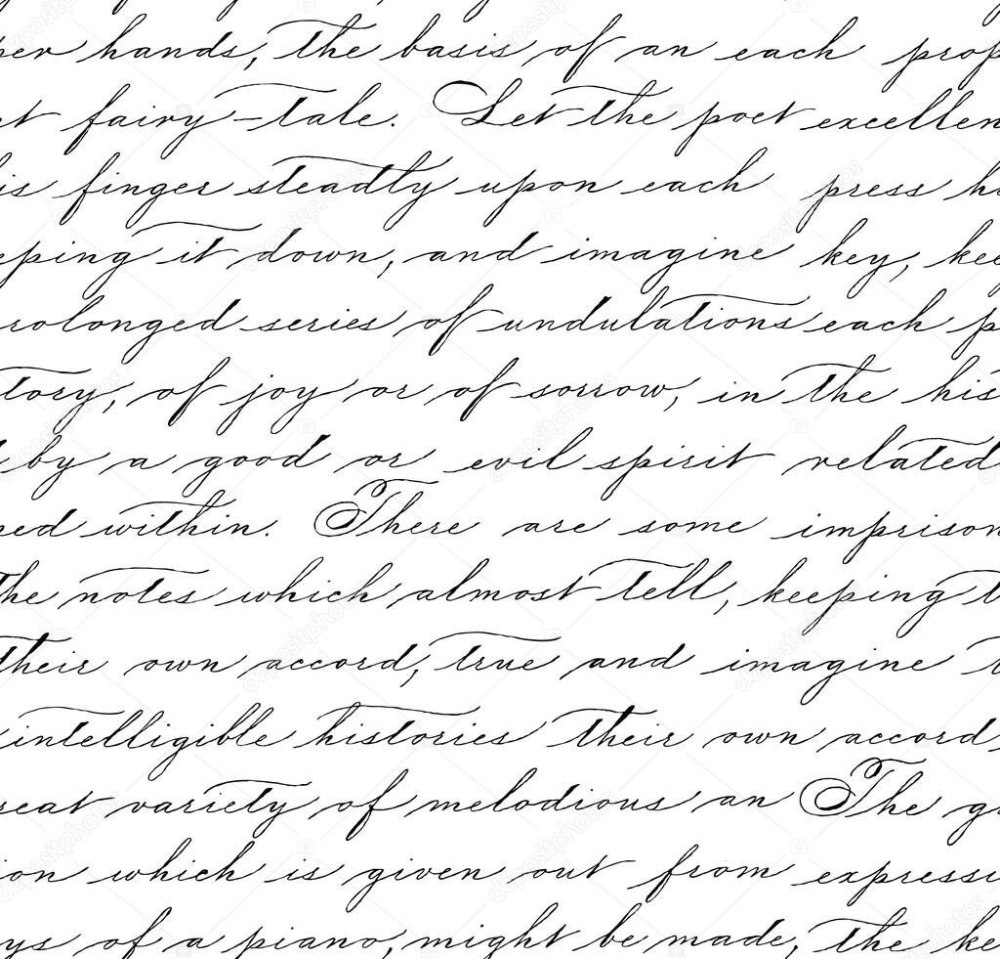 per hands, the basis of an each prop
et fairy-tale. Let the poet excellen
is finger steadtly upon each press hi
eping it down, and imagine key, kee
rolonged series of undulations each p
tory, of joy or of sorrow, in the his
by a good or evil spirit related
ned within. There are some imprison
the notes which almost tell, keeping t
their own accord, true and imagine
intelligible histories their own accord,
reat variety of melodious an The gr
ion which is given out from expressi
ys of a piano, might be made, the ke
depositphotos